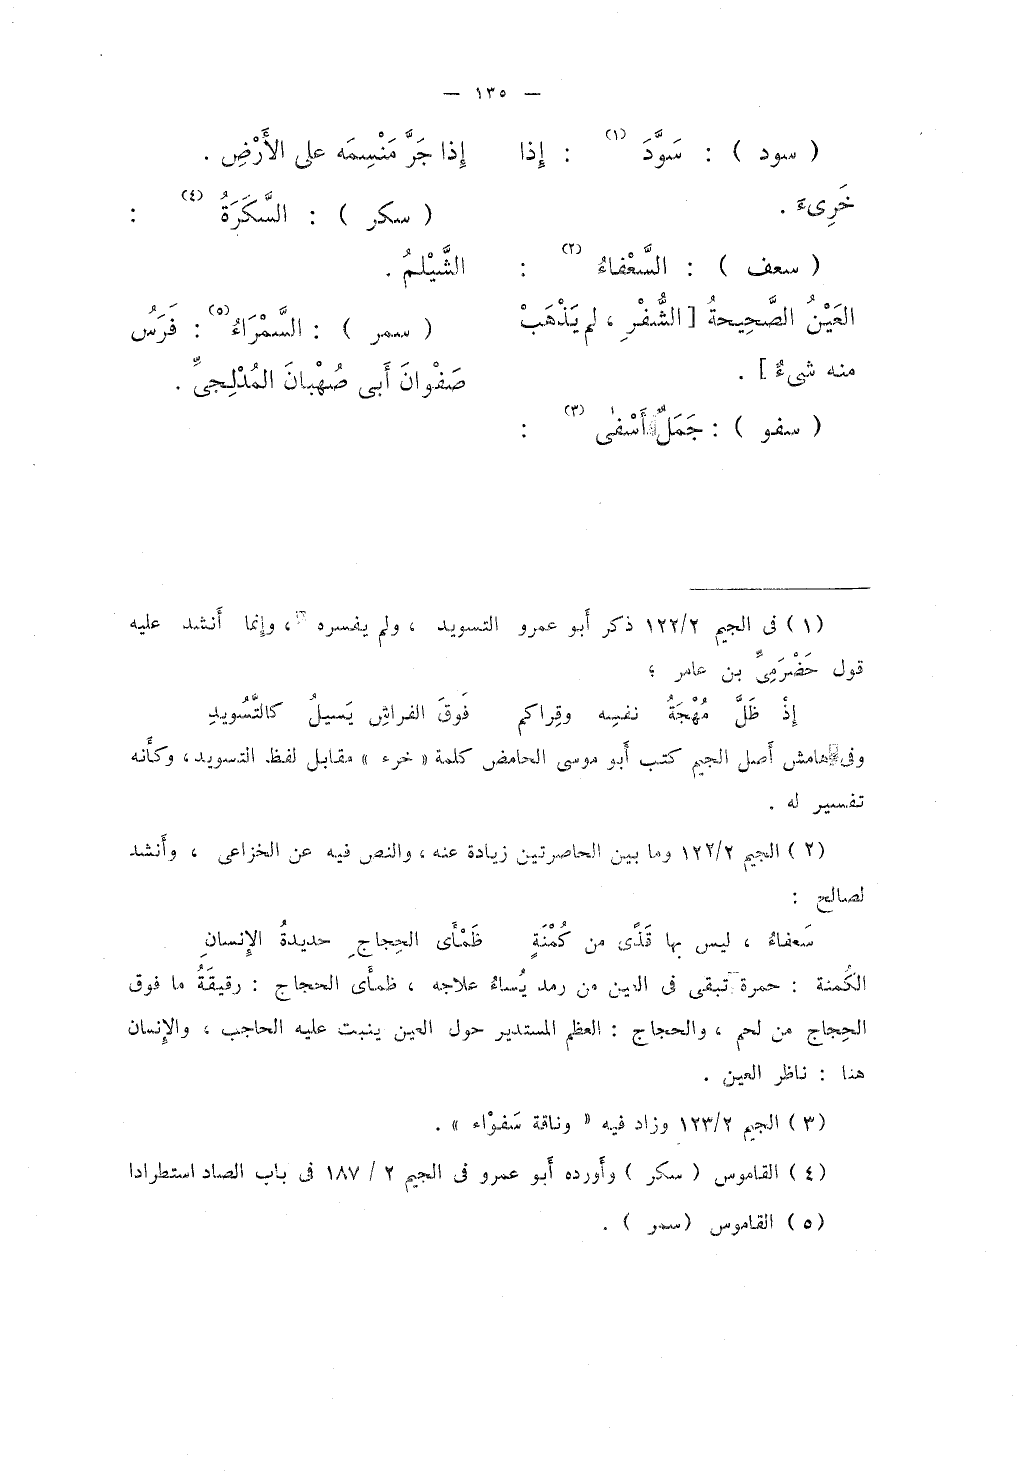 — ١٣٥ —
( سود ) : سَوَّدَ (١) : إِذا
خَرِىءَ .
( سعف ) : السَّعْفاءُ (٢) :
العَيْنُ الصَّحِيحةُ [ الشُّفْرِ ، لم يَذْهَبْ
منه شىءٌ ] .
( سفو ) : جَمَلٌ أَسْفٰى (٣) :
إِذا جَرَّ مَنْسِمَه على الأَرْضِ .
( سكر ) : السَّكَرَةُ (٤) :
الشَّيْلمُ .
( سمر ) : السَّمْرَاءُ (٥) : فَرَسُ
صَفْوانَ أَبى صُهْبانَ المُدْلِجىِّ .
(١) فى الجيم ١٢٢/٢ ذكر أَبو عمرو التسويد ، ولم يفسره ، وإِنما أَنشد عليه
قول حَضْرَمِىِّ بن عامر ؛
إِذْ ظَلَّ مُهْجَةُ نفسِه وقِراكم فَوقَ الفراشِ يَسيلُ كالتَّسْويدِ
وفى هامش أَصل الجيم كتب أَبو موسى الحامض كلمة « خرء » مقابل لفظ التسويد ، وكأَنه
تفسير له .
(٢) الجيم ١٢٢/٢ وما بين الحاصرتين زيادة عنه ، والنص فيه عن الخزاعى ، وأَنشد
لصالح :
سَعفاءُ ، ليس بها قَذًى من كُمْنَةٍ ظَمْأَى الحِجاجِ حديدةُ الإِنسانِ
الكُمنة : حمرة تبقى فى العين من رمد يُساءُ علاجه ، ظمأَى الحجاج : رقيقَةُ ما فوق
الحِجاج من لحم ، والحجاج : العظم المستدير حول العين ينبت عليه الحاجب ، والإِنسان
هنا : ناظر العين .
(٣) الجيم ١٢٣/٢ وزاد فيه « وناقة سَفوْاء » .
(٤) القاموس ( سكر ) وأَورده أَبو عمرو فى الجيم ٢ / ١٨٧ فى باب الصاد استطرادا
(٥) القاموس (سمر ) .